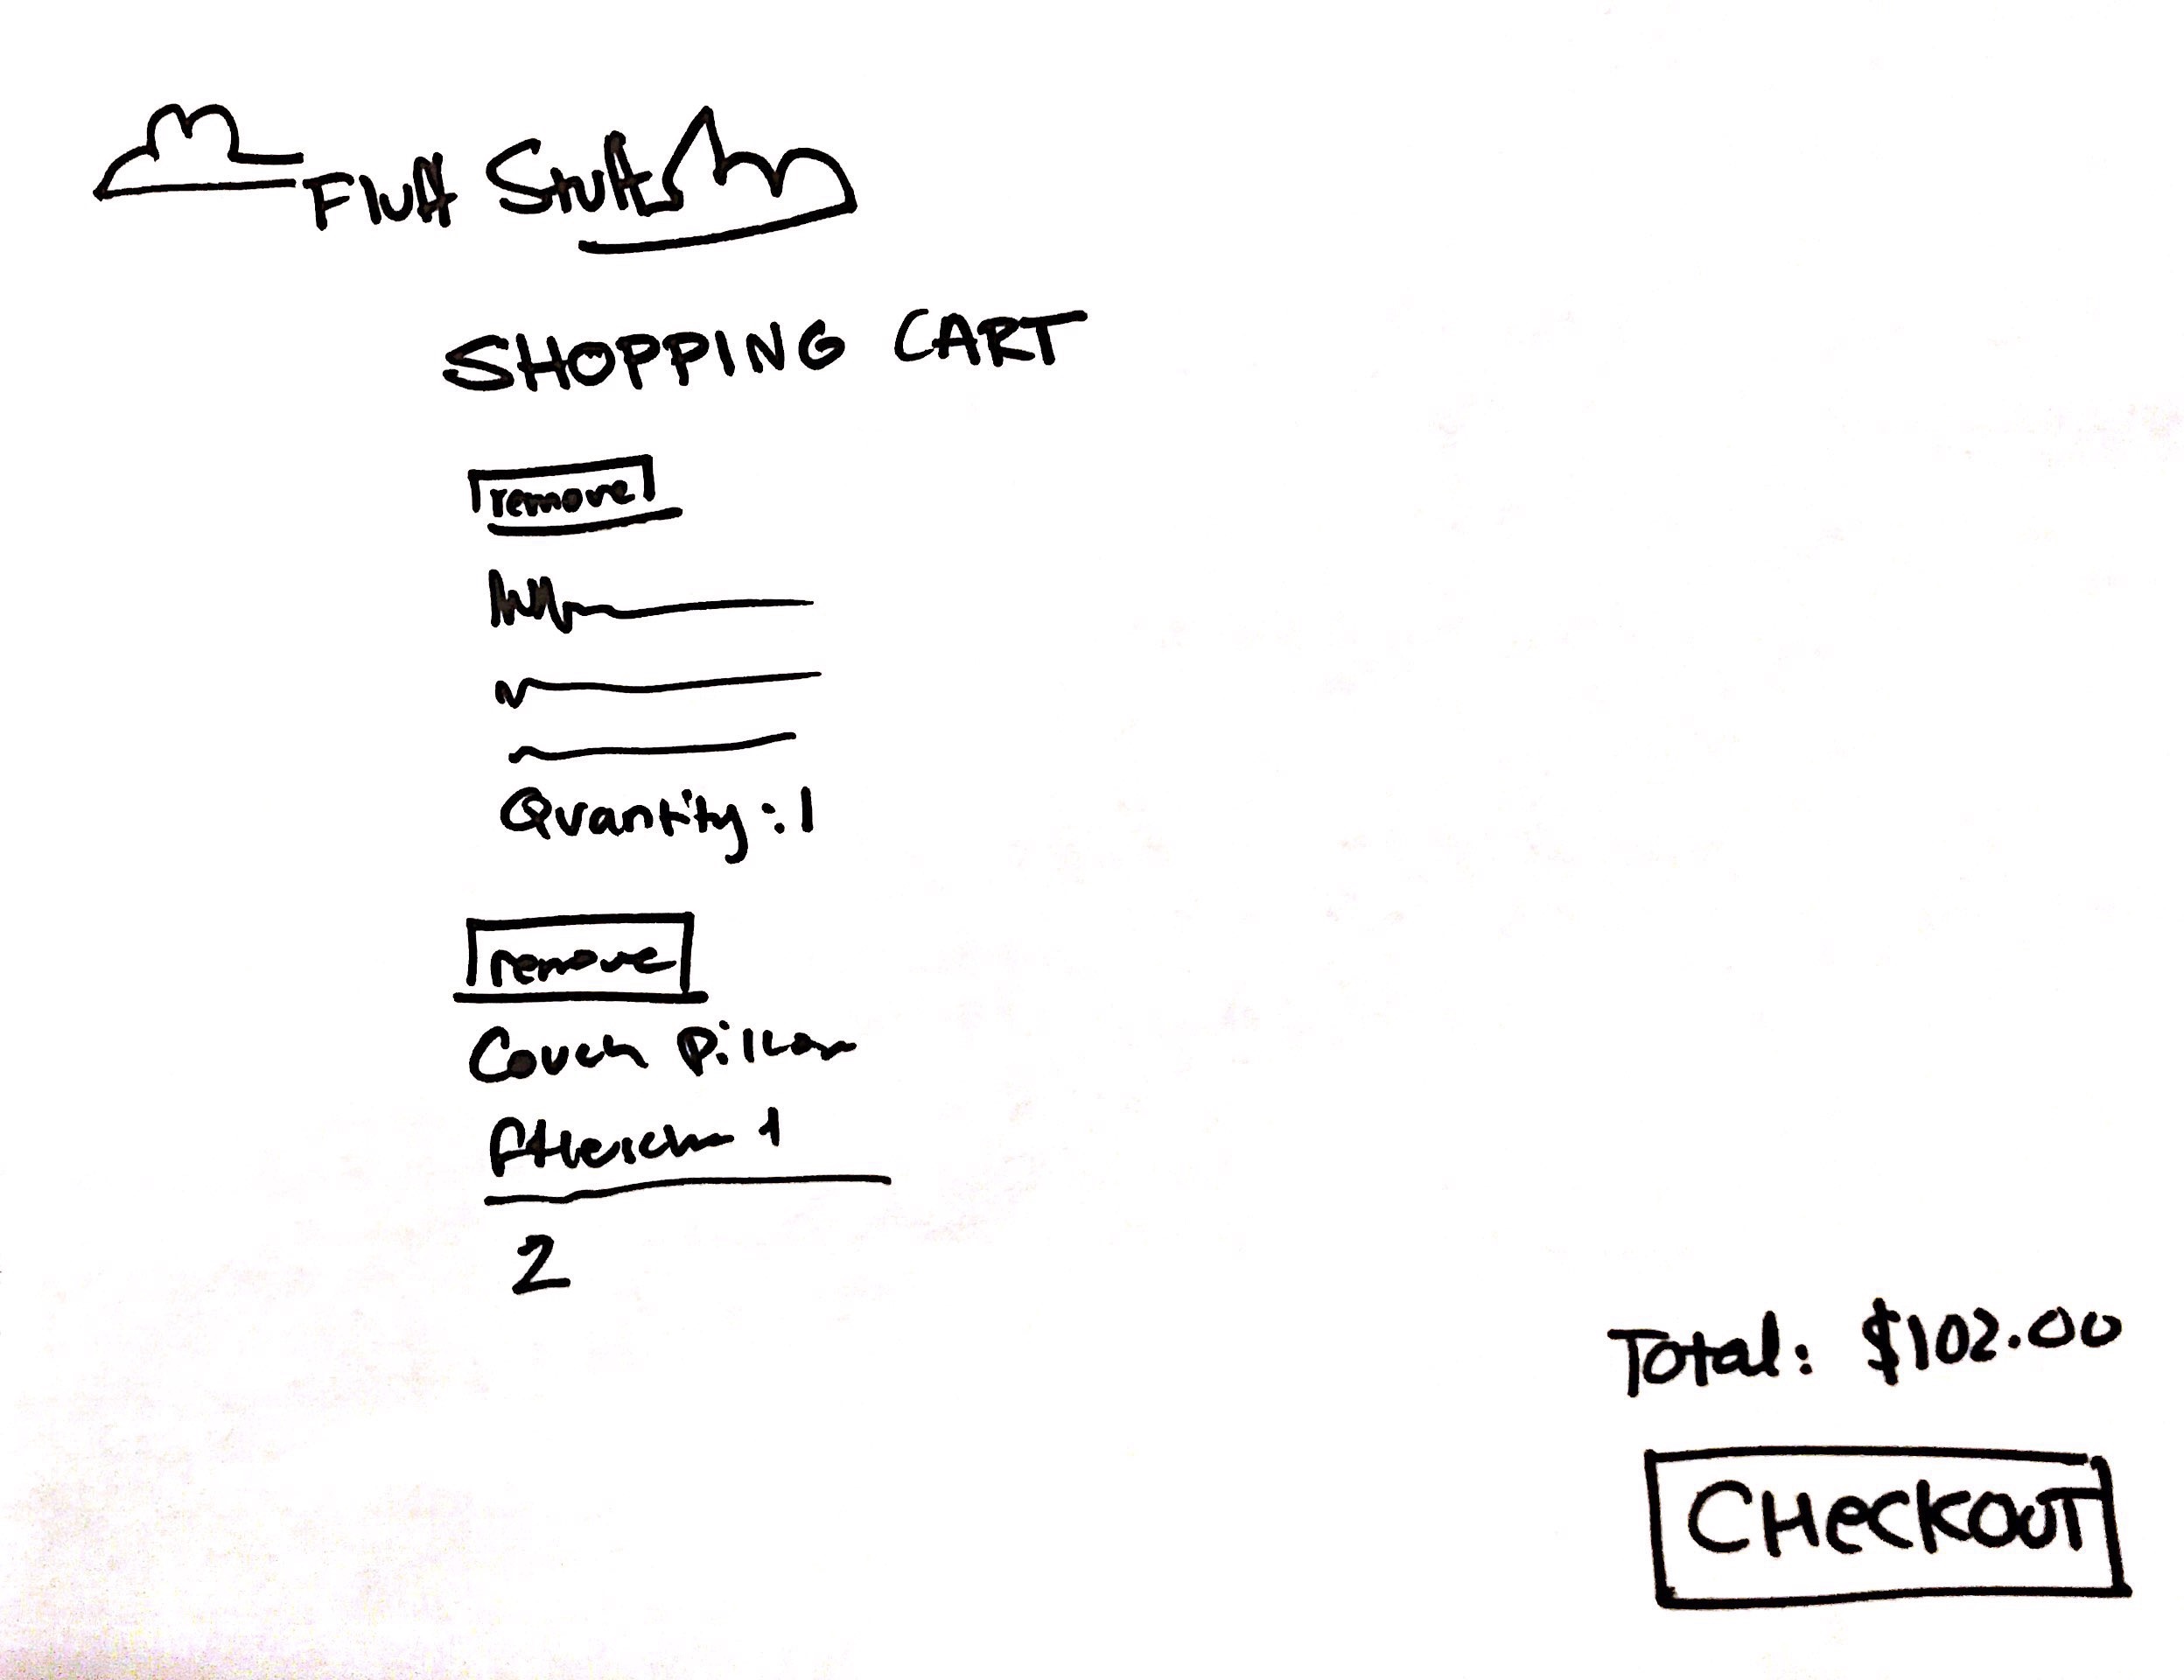 Fluff Stuff
SHOPPING CART
remove
Quantity: 1
remove
Couch Pillow
1
2
Total: $102.00
CHeCKOUT